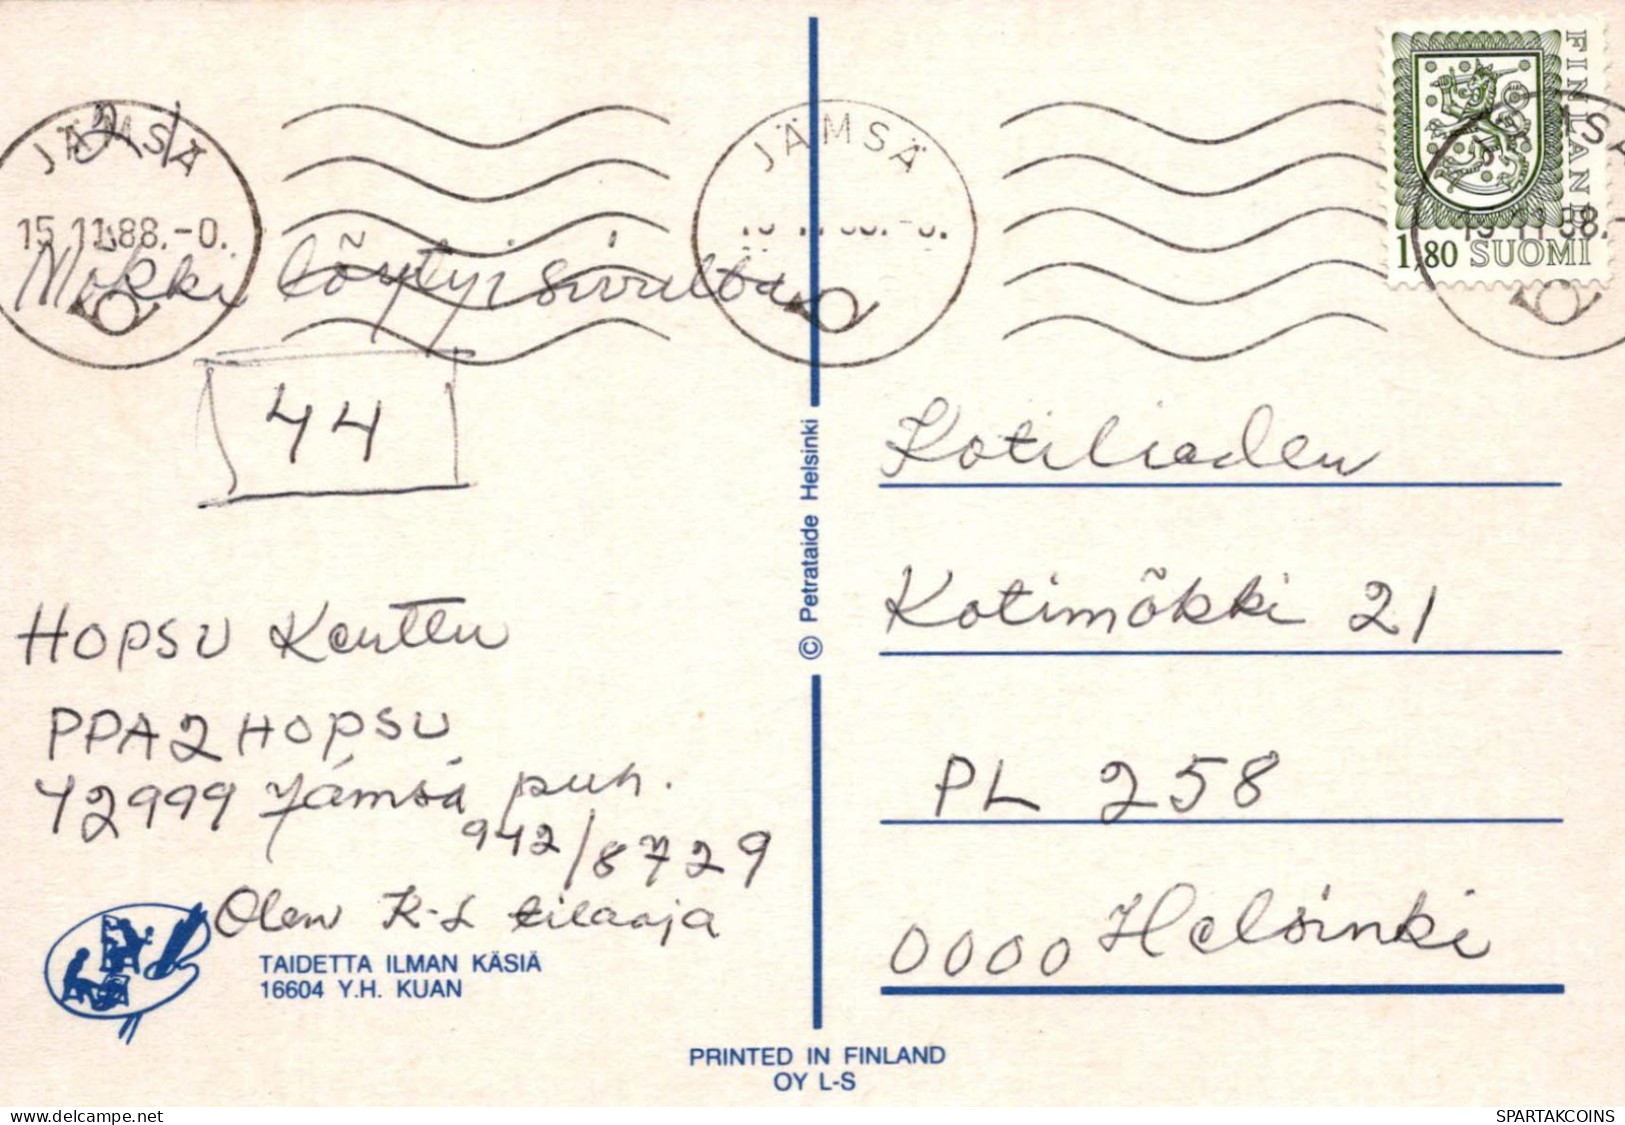 21
JÄMSÄ
15.11.88.-0.
Mökki löytyi sivulta
44
HOPSU Kerttu
PPA 2 HOPSU
42999 Jämsä puh.
942/8729
Olen K-L tilaaja
TAIDETTA ILMAN KÄSIÄ
16604 Y.H. KUAN
© Petrataide Helsinki
PRINTED IN FINLAND
OY L-S
JÄMSÄ
FINLAND
1,80 SUOMI
Kotilieden
Kotimökki 21
PL 258
0000 Helsinki
delcampe.net
SPARTAKCOINS